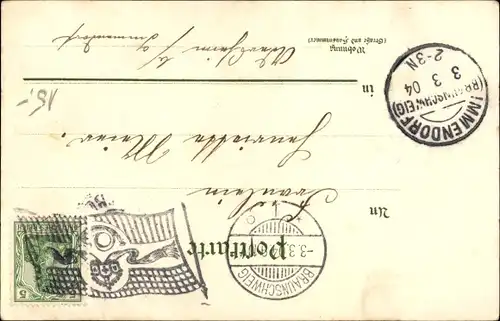 Postkarte
An
Fräulein
Henriette Meier.
in
Wohnung
(Straße und Hausnummer)
Immendorf
IMMENDORF
(BRAUNSCHWEIG)
3 3 04
2-3N
BRAUNSCHWEIG
-3.3.
5
15,-